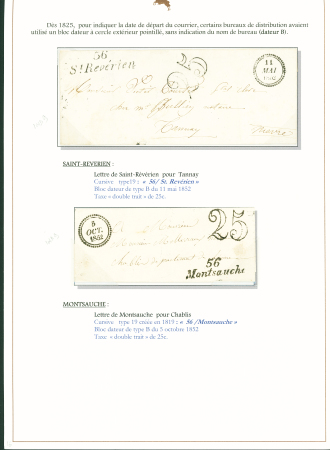 Dès 1825, pour indiquer la date de départ du courrier, certains bureaux de distribution avaient
utilisé un bloc dateur à cercle extérieur pointillé, sans indication du nom de bureau (dateur B).
56
St Revérien
25
11
MAI
1852
Tannay
Nievre
SAINT-REVERIEN :
Lettre de Saint-Révérien pour Tannay
Cursive type19 : « 56/ St. Revérien »
Bloc dateur de type B du 11 mai 1852
Taxe « double trait » de 25c.
5
OCT.
1852
25
56
Montsauche
MONTSAUCHE :
Lettre de Montsauche pour Chablis
Cursive type 19 créée en 1819 : « 56 /Montsauche »
Bloc dateur de type B du 5 octobre 1852
Taxe « double trait » de 25c.